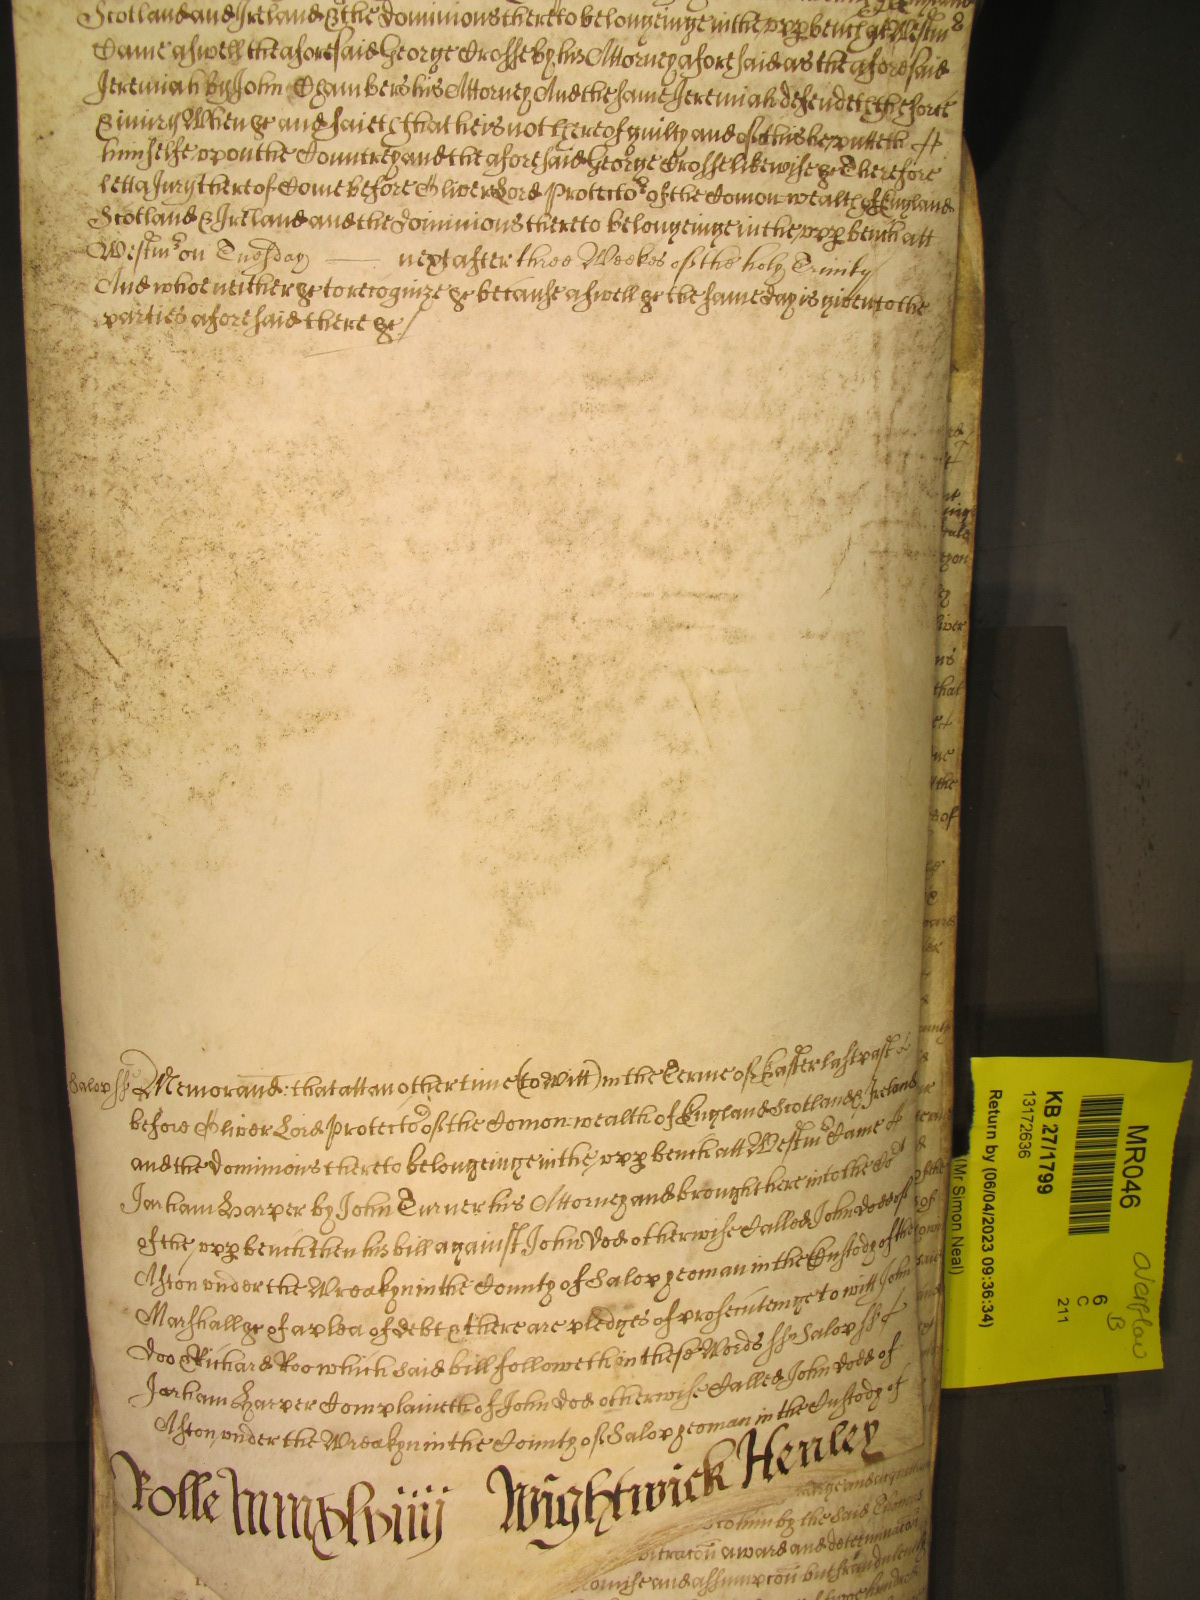 Scotland and Ireland & the dominions thereto belongeinge in the upp bench att Westmr
Came aswell the aforesaid George Crosse by his Attorney aforesaid as the aforesaid
Jeremiah by John Chambers his Attorney And the same Jeremiah defendeth the force
& iniury When &c and saieth that he is not thereof guilty and of this he putteth
himselfe upon the Countrey and the aforesaid George Crosse likewise &c Therefore
lett a Jury thereof Come before Oliver Lord Protector of the Comonwealth of England
Scotland & Ireland and the dominions thereto belongeinge in the upp bench att
Westmr on Tuesday next after three Weekes of the holy Trinity
And whoe neither &c to recognize &c because aswell &c the same day is given to the
parties aforesaid there &c
Salop ss Memorand: that att another time (to witt) in the Terme of Easter last past
before Oliver Lord Protector of the Comonwealth of England Scotland & Ireland
and the dominions thereto belongeinge in the upp bench att Westmr Came
Jarham Harper by John Turner his Attorney and brought here into the Cot
of the upp bench then his bill against John Dod otherwise Called John Dodd of
Aston under the Wreakyn in the County of Salop yeoman in the Custody of the
Marshall &c of a plea of debt & there are pledges of prosecuteinge to witt John
Doo & Richard Roo which said bill followeth in these Words ss Salop ss
Jarham Harper Complaineth of John Dod otherwise Called John Dodd of
Aston under the Wreakyn in the County of Salop yeoman in the Custody of
Rolle Wightwick Henley
by the said Thomas
award and determinacon
and assumpcon but fraudulently
MR046
KB 27/1799
13172636
Return by (06/04/2023 09:36:34)
(Mr Simon Neal)
6
C
211
B